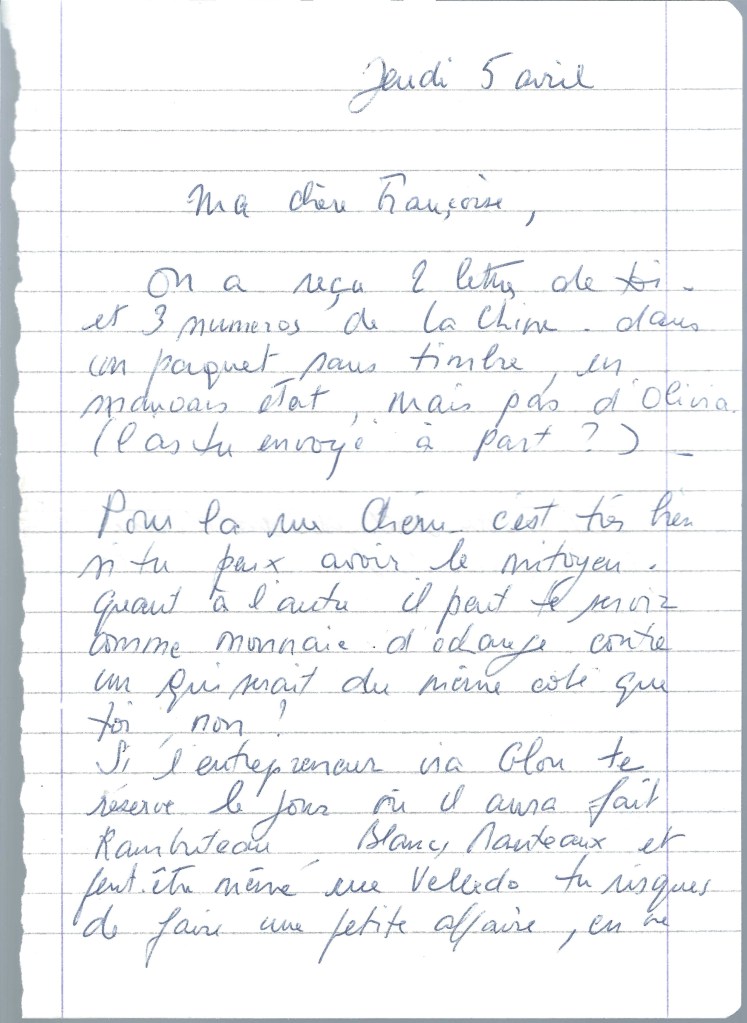 Jeudi 5 avril
Ma chère Françoise,
On a reçu 2 lettres de toi -
et 3 numeros de la Chine - dans
un paquet sans timbre, en
mauvais état, mais pas d'Olivia.
(l'as tu envoyé à part ?) -
Pour la rue c'est très bien
si tu peux avoir le mitoyen.
quant à l'autre il peut te servir
comme monnaie d'échange contre
un qui serait du même coté que
toi, non ?
Si l'entrepreneur via te
réserve le jour où il aura fait
Rambuteau, Blancs Manteaux et
peut-être même rue tu risques
de faire une petite affaire, en ne